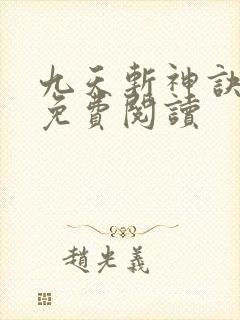 九天斬神訣
免費閱讀
趙光義